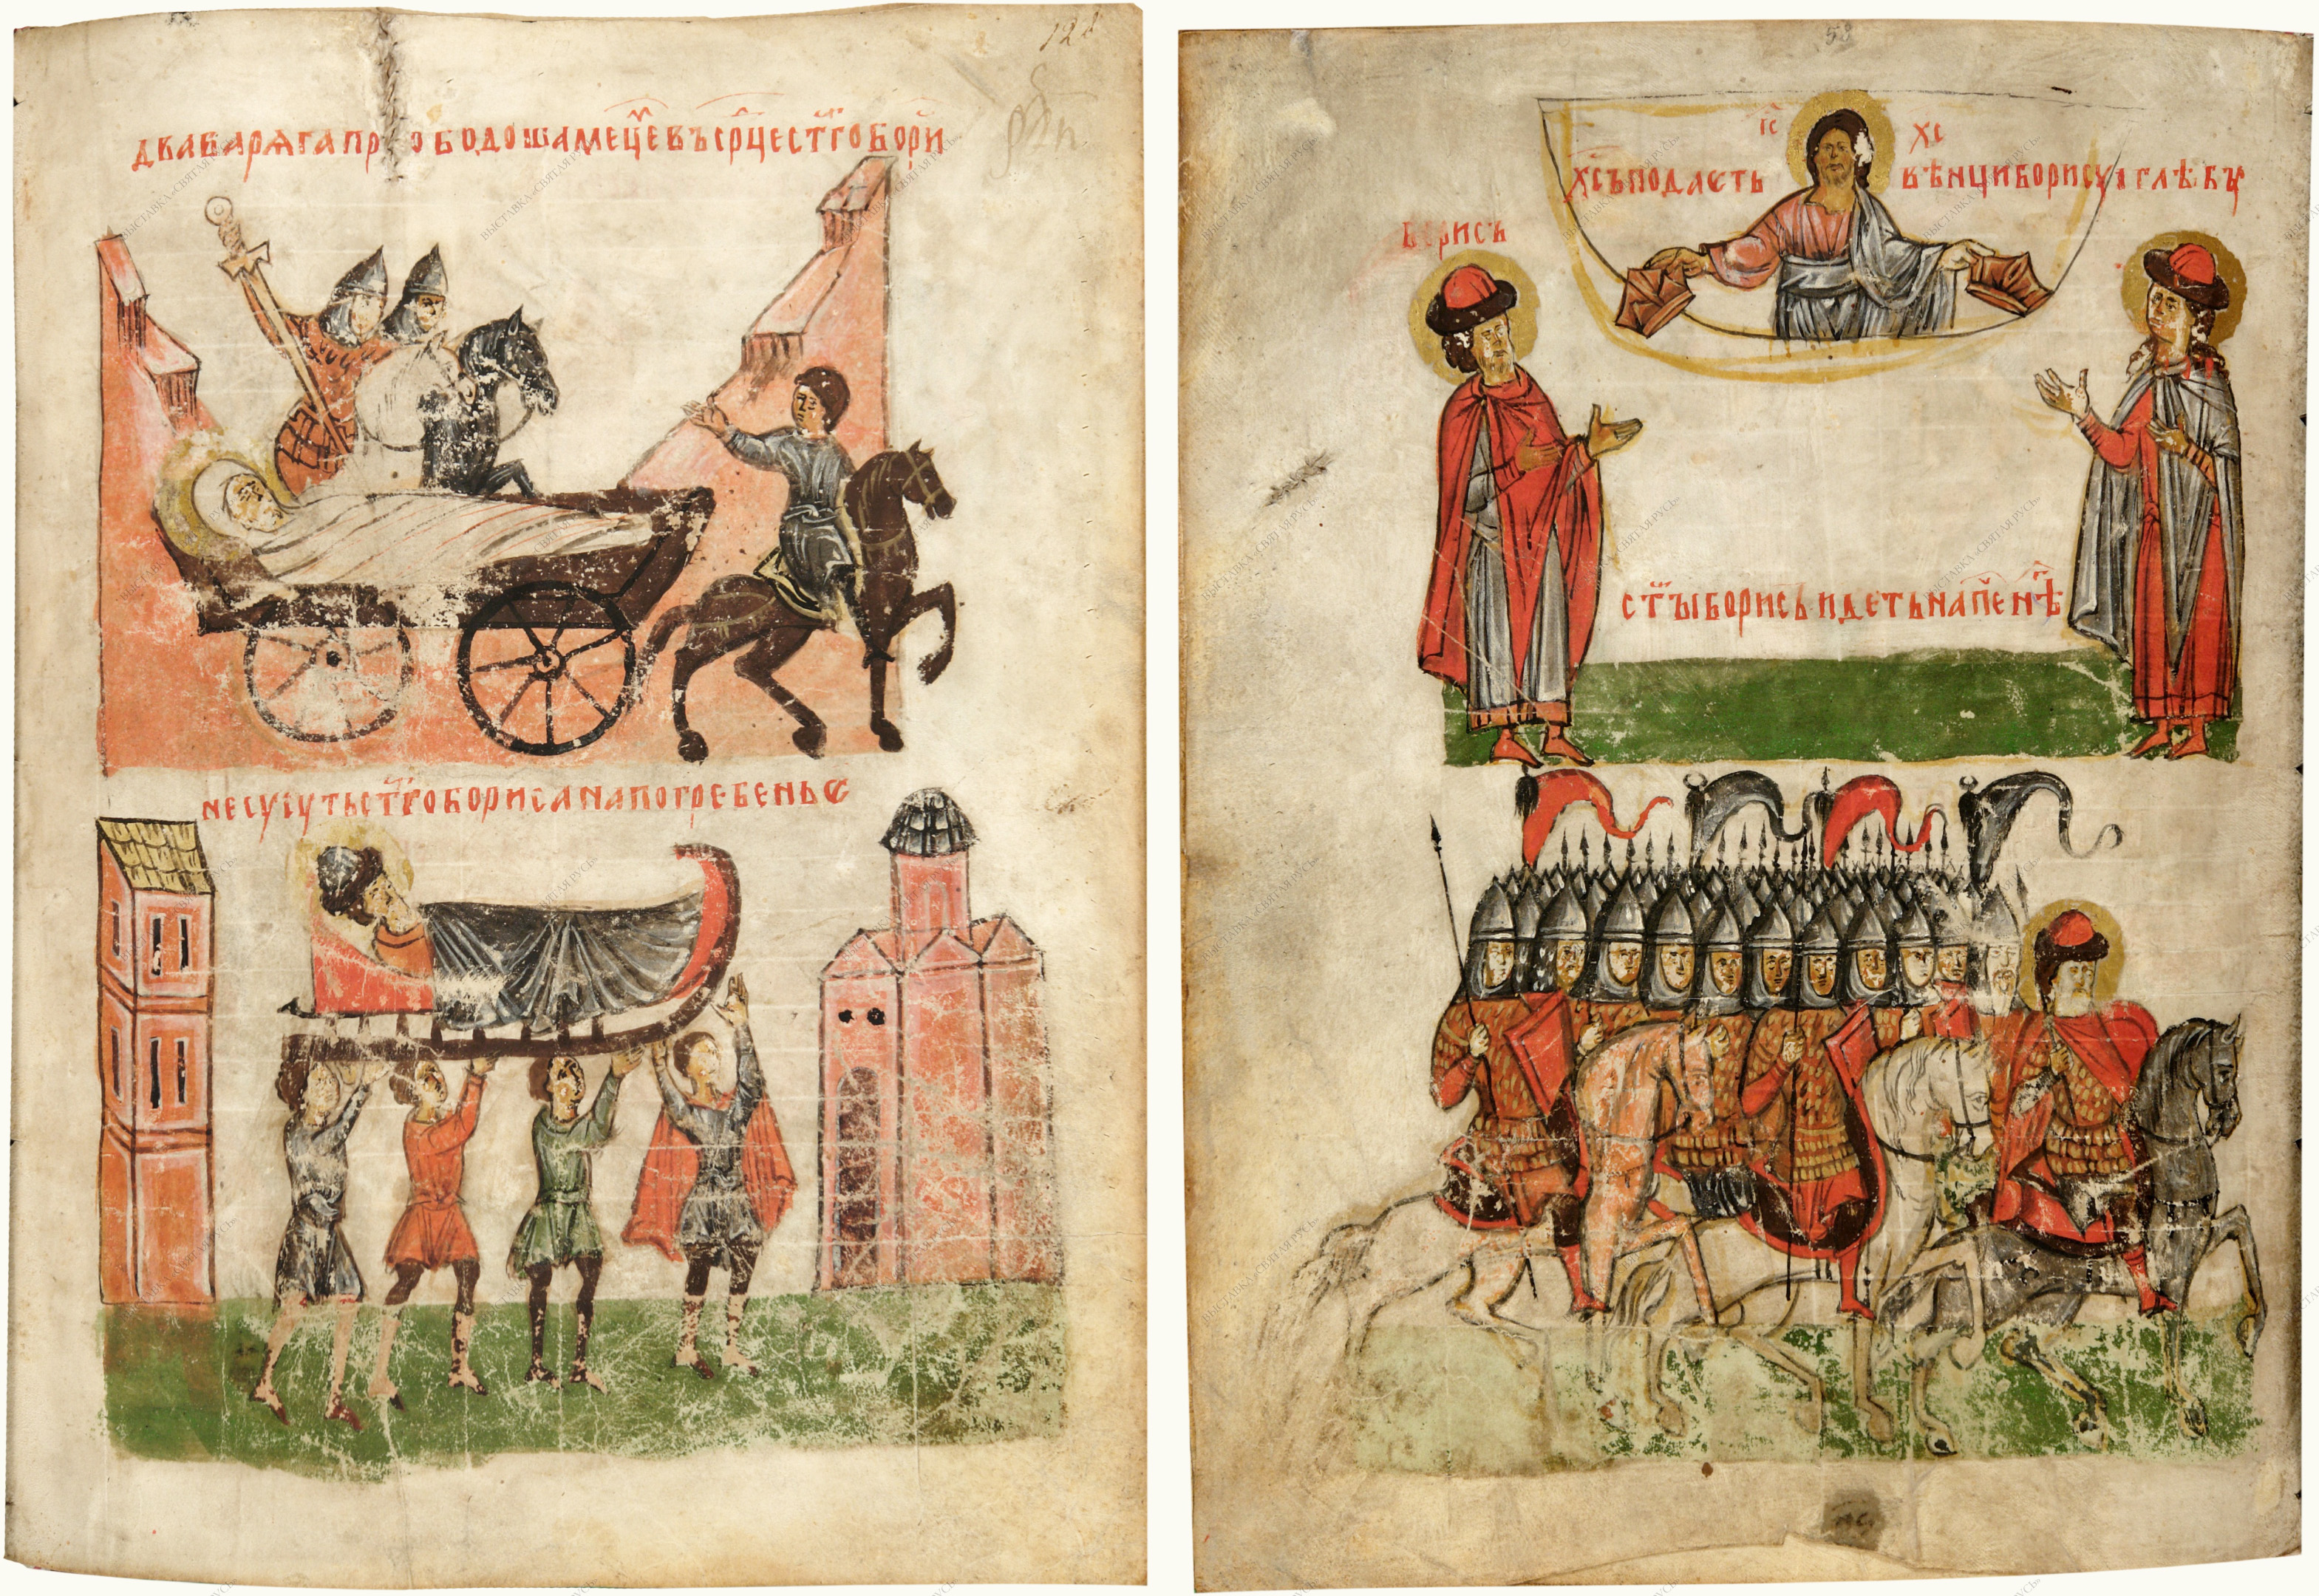 124
два варяга прободоша мецемь въ срце стго бори
несуть стго бориса на погребенье
53
ІС ХС
хсъ подаєть вѣнци борису и глѣбу
борисъ
стъı борисъ идеть на печенѣгъı
ВЫСТАВКА «СВЯТАЯ РУСЬ»